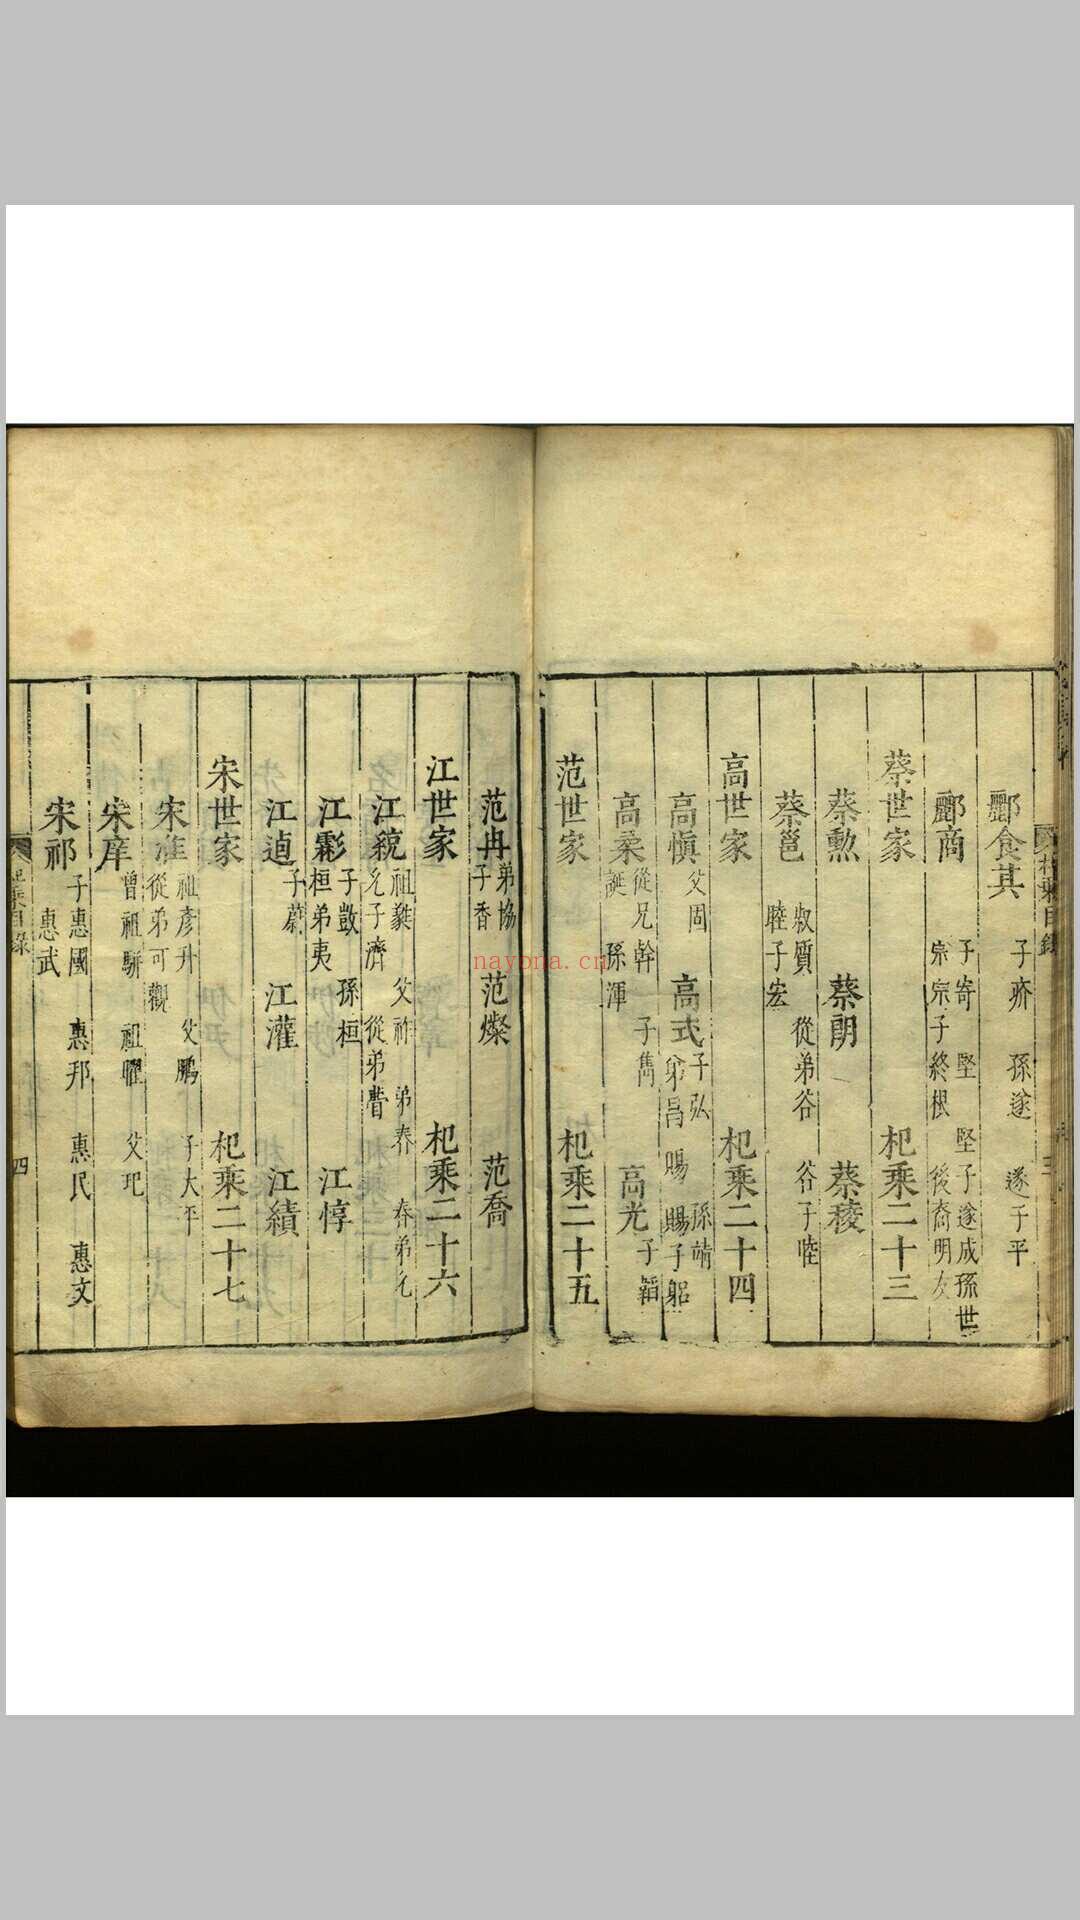 酈食其 子疥 孫遂 遂子平
酈商 子寄 堅 堅子遂成孫世宗宗子終根 後裔明友
蔡世家 杞乘二十三
蔡勲 蔡朗 蔡稜
蔡邕 叔質 從弟谷 谷子睦睦子宏
高世家 杞乘二十四
高慎 父固 高式 子弘 弟昌 賜 孫靖 賜子躬
高柔 從兄幹 子雋 誕 孫渾 高光 子韜
范世家 杞乘二十五
范冉 弟協 子香 范燦 范喬
江世家 杞乘二十六
江統 祖蕤 父祚 弟春 春弟允 允子濟 從弟瞢
江虨 子敳 孫桓 桓弟夷 江惇
江逌 子蔚 江灌 江績
宋世家 杞乘二十七
宋准 祖彥升 父鵬 子大平 從弟可觀
宋庠 曾祖駢 祖曜 父玘
宋祁 子惠國 惠邦 惠民 惠文 惠武
杞乘目錄 四
nayona.cn